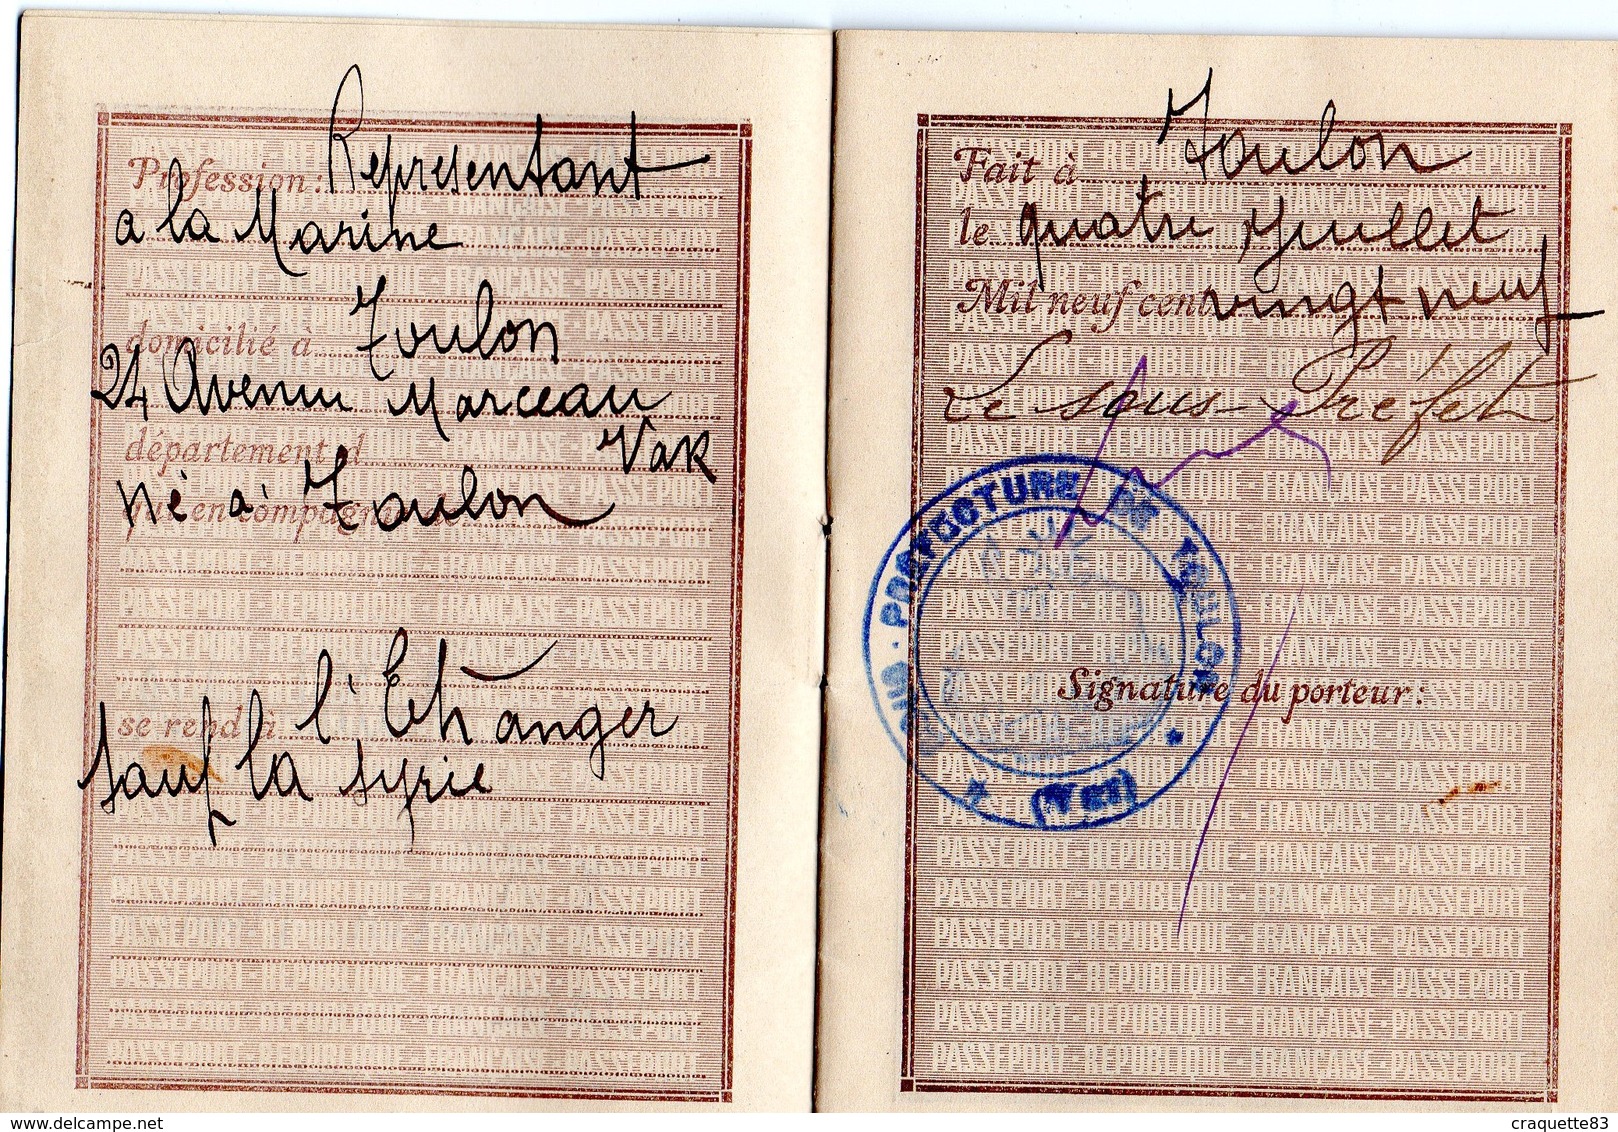 Profession : Representant
a la Marine
domicilié à Toulon
24 Avenue Marceau
département d Var
né a Toulon
se rend à l'Etranger
sauf la syrie
Fait à Toulon
le quatre Juillet
Mil neuf cent vingt neuf
Le Sous-Préfet
SOUS-PREFECTURE DE TOULON
(Var)
Signature du porteur :
PASSEPORT-RÉPUBLIQUE FRANÇAISE-PASSEPORT
www.delcampe.net
craquette83